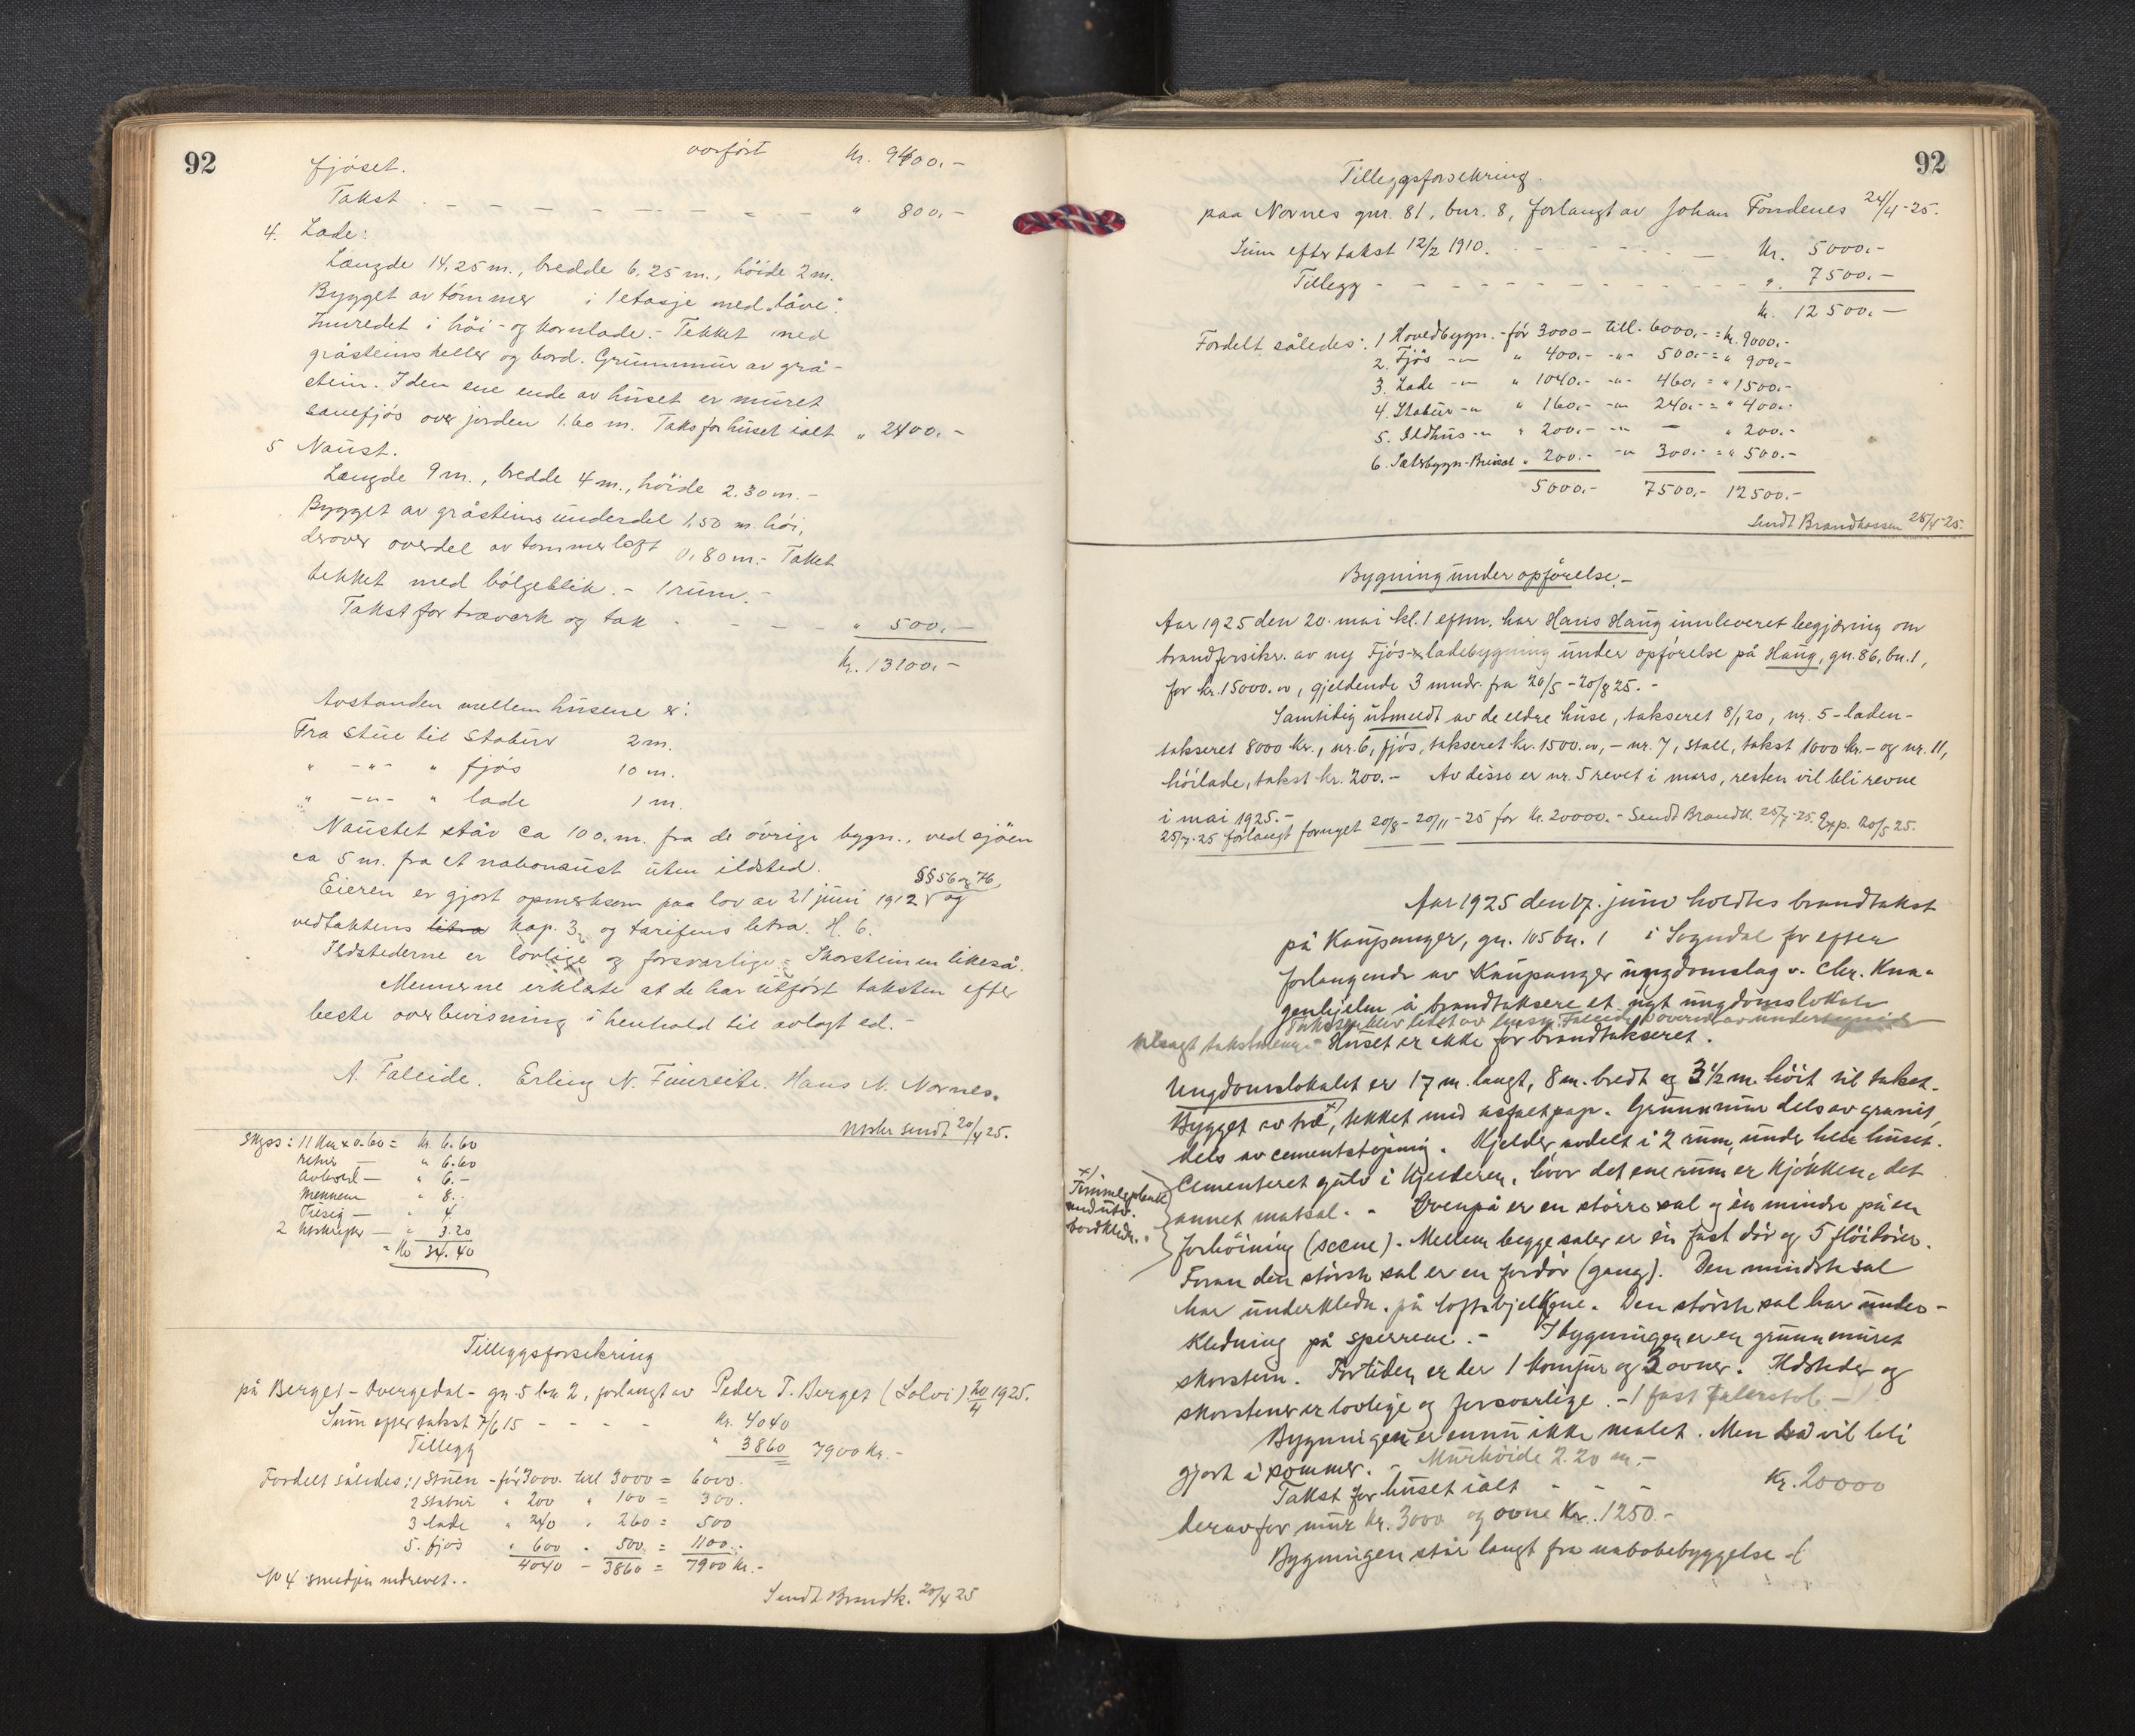 92
fjøset. overført kr. 9400.-
Takst . - - - - - - - - - " 800.-
4. Lade:
Længde 14,25 m., bredde 6.25 m., höide 2 m.
Bygget av tömmer i 1 etasje med "låve".
Innredet i höi- og kornlade.- Tekket med
gråsteins heller og bord. Grunnmur av grå-
stein. I den ene ende av huset er muret
sauefjös over jorden 1.60 m. Takst for huset ialt " 2400.-
5 Naust.
Længde 9 m., bredde 4 m., höide 2.30 m.-
Bygget av gråsteins underdel 1,50 m. höi,
derover overdel av tømmerloft 0,80 m.- Taket
tekket med bölgeblik.- 1 rum.-
Takst for træverk og tak - - - - " 500.-
kr. 13100.-
Avstanden mellem husene er:
Fra stue til stabur 2 m.
" -"- " fjös 10 m.
" -"- " lade 1 m.
Naustet står ca 100 m. fra de övrige bygn., ved sjöen
ca 5 m. fra et nabonaust uten ildsted.
§§ 56 og 76,
Eieren er gjort opmerksom paa lov av 21 juni 1912 og
vedtektens litra kap. 3, og tarifens litra. H. 6.
Ildstederne er lovlige og forsvarlige - Skorsteinen likeså.
Mennerne erklærte at de har utført taksten efter
beste overbevisning i henhold til avlagt ed.-
A. Faleide. Erling N. Fimreite. Hans N. Nornes.
Utskr sendt 20/4 25.
Skyss: 11 km x 0.60 = kr. 6.60
retur — " 6.60
Avhold — " 6.-
Mennene " 8.-
Tilsig — " 4
2 utskrifter — " 3.20
= Kr 34.40
Tilleggsforsekring
på Berget - Övergedal - gn 5 bn 2, forlangt av Peder T. Berget (Solvi) 20/4 1925.
Sum efter takst 7/6 15 - - - - kr. 4040
Tillegg " 3860 7900 kr.-
Fordelt således: 1 Stuen - för 3000. till 3000 = 6000.
2 Stabur " 200 " 100 = 300.
3 lade " 240 " 260 = 500
5. fjös " 600 " 500. = 1100.-
4040 - 3860 = 7900 kr.-
No 4 smedjen nedrevet..
Sendt Brandk. 20/4 25
92
Tilleggsforsekring.
paa Nornes gnr. 81, bnr. 8, forlangt av Johan Fondenes 24/4-25.
Sum efter takst 12/2 1910. - - - - - kr. 5000.-
Tillegg - - - - - - - - - - " 7500.-
kr. 12500.-
Fordelt således: 1 Hovedbygn. - för 3000 - till. 6000.- = kr. 9000.-
2. Fjös -"- " 400.- -"- 500.- = " 900.-
3. Lade -"- " 1040.- -"- 460.- = " 1500.-
4. Stabur -"- " 160.- -"- 240.- = " 400.-
5. Ildhus -"- " 200.- -"- — " 200.-
6. Sæterbygn- " 200.- -"- 300.- = " 500.-
5000.- 7500.- 12500.-
Sendt Brandkassen 25/4-25.
Bygning under opförelse.-
Aar 1925 den 20. mai kl. 1 eftm. har Hans Haug innleveret begjæring om
brandforsikr. av ny Fjös-&ladebygning under opförelse på Haug, gn. 86, bn. 1,
for kr. 15000.00, gjeldende 3 mndr. fra 20/5 - 20/8 25.-
Samtidig utmeldt av de eldre huse, takseret 8/1 20, nr. 5 - laden -
takseret 8000 kr., nr. 6, fjös, takseret kr. 1500.00, - nr. 7, stall, takst 1000 kr.- og nr. 11,
höilade, takst kr. 200.- Av disse er nr. 5 revet i mars, resten vil bli revne
i mai 1925.-
25/7-25 forlangt fornyet 20/8 - 20/11 - 25 for kr. 20000.- Sendt Brandk. 25/7-25. Exp. 20/5 25.
Aar 1925 den 17. juni holdtes brandtakst
på Kaupanger, gn. 105 bn. 1 i Sogndal for efter
forlangende av Kaupanger ungdomslag v. Chr. Kna-
genhjelm å brandtaksere et nytt ungdomslokale
Taksten blev ledet av lensm. Faleide,
Huset er ikke för brandtakseret.
Ungdomslokalet er 17 m. langt, 8 m. bredt og 3 1/2 m. höit til taket.
Bygget av træ x), tekket med asfaltpap. Grunnmur dels av granit,
dels av cementstöpning. Kjelder, avdelt i 2 rum, under hele huset.
x) Tømmerplank med utv. bordkledn.
Cementeret gulv i kjelderen, hvor det ene rum er kjökken, det
annet matsal. - Ovenpå er en större sal og en mindre på en
forhöining (scene). Mellem begge saler er en fast dör og 5 flöidörer.
Foran den störste sal er en fordör (gang). Den mindste sal
har underkledn. på loftsbjelkene. Den störste sal har under-
kledning på sperrene.- I bygningen er en grunnmuret
skorstein. Fortiden er der 1 komfur og 3 ovner. Ildsteder og
skorstener er lovlige og forsvarlige.- 1 fast talerstol.-
Bygningen er ennu ikke malet. Men det vil bli
gjort i sommer. - Murhöide 2.20 m.-
Takst for huset ialt - - - Kr. 20000
derav for mur kr. 3000 og ovne Kr. 1250.-
Bygningen står langt fra nabobebyggelse -